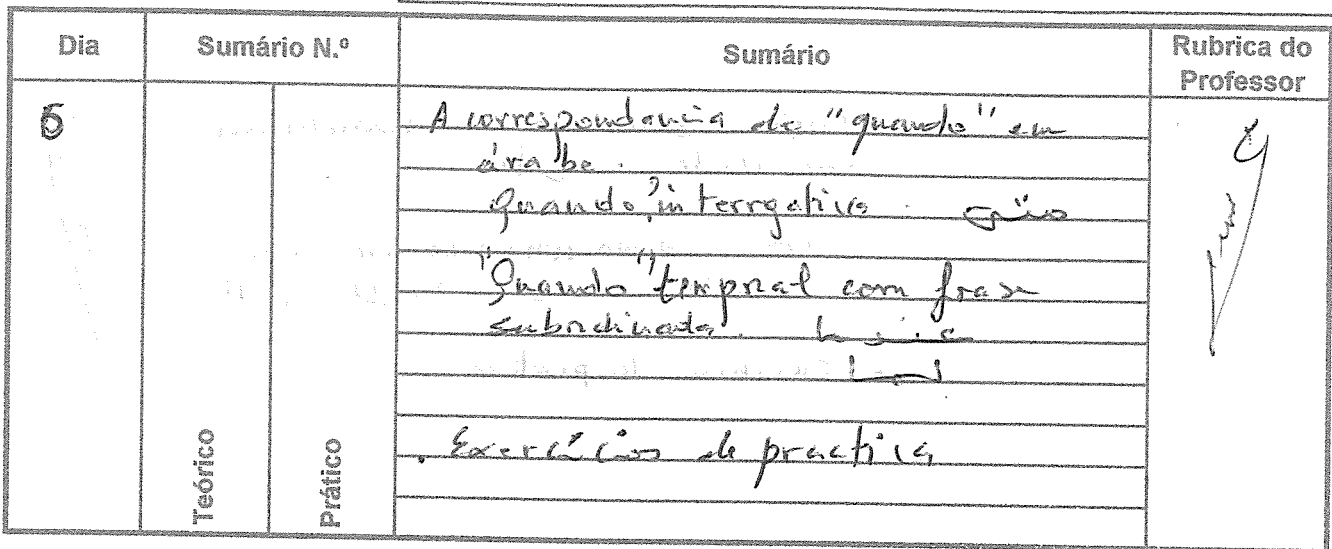 Dia Sumário N.º Sumário Rubrica do Professor
6
A correspondancia de "quando" em
árabe.
Quando, interrgativa. متى
"Quando" temporal com frase
subordinada. عندما
لما
. Exercícios de practica
Teórico
Prático